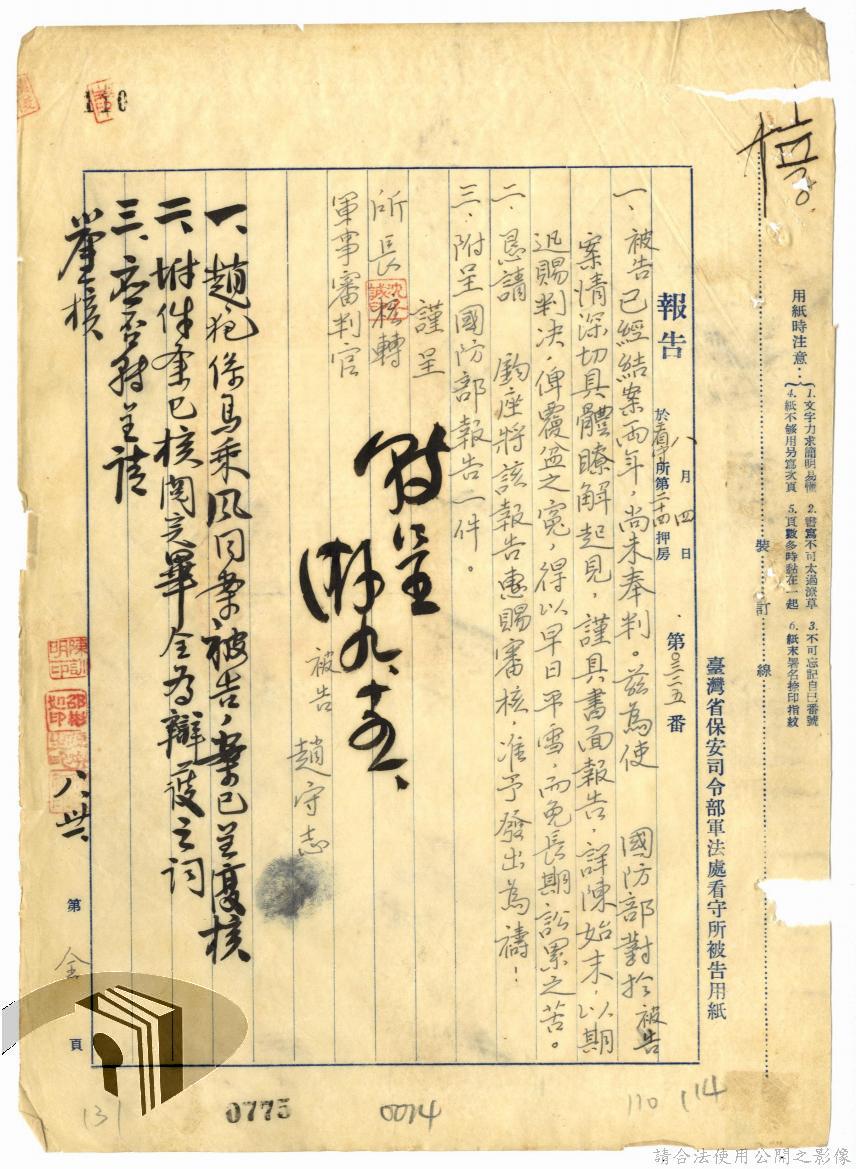 用紙時注意：
1. 文字力求簡明易懂
2. 書寫不可太過潦草
3. 不可忘記自己番號
4. 紙不够用另寫次頁
5. 頁數多時黏在一起
6. 紙末署名捺印指紋
裝訂線
臺灣省保安司令部軍法處看守所被告用紙
報告
八月四日
於看守所第二十四押房
第〇三二五番
一、被告已經結案兩年，尚未奉判。茲為使 國防部對於被告
案情深切具體瞭解起見，謹具書面報告，詳陳始末，以期
迅賜判決，俾覆盆之寃，得以早日平雪，而免長期訟累之苦。
二、恳請 鈞座將該報告惠賜審核，准予發出為禱！
三、附呈國防部報告一件。
謹呈
所長 轉
軍事審判官
被告 趙守志
一、趙犯係馬乘風同案被告，案已呈覆核
二、附件業已核閱完畢全為辯護之詞
三、應否附呈請
鑒核
八、卅、
第全頁
110
0775
0014
131
110
114
請合法使用公開之影像